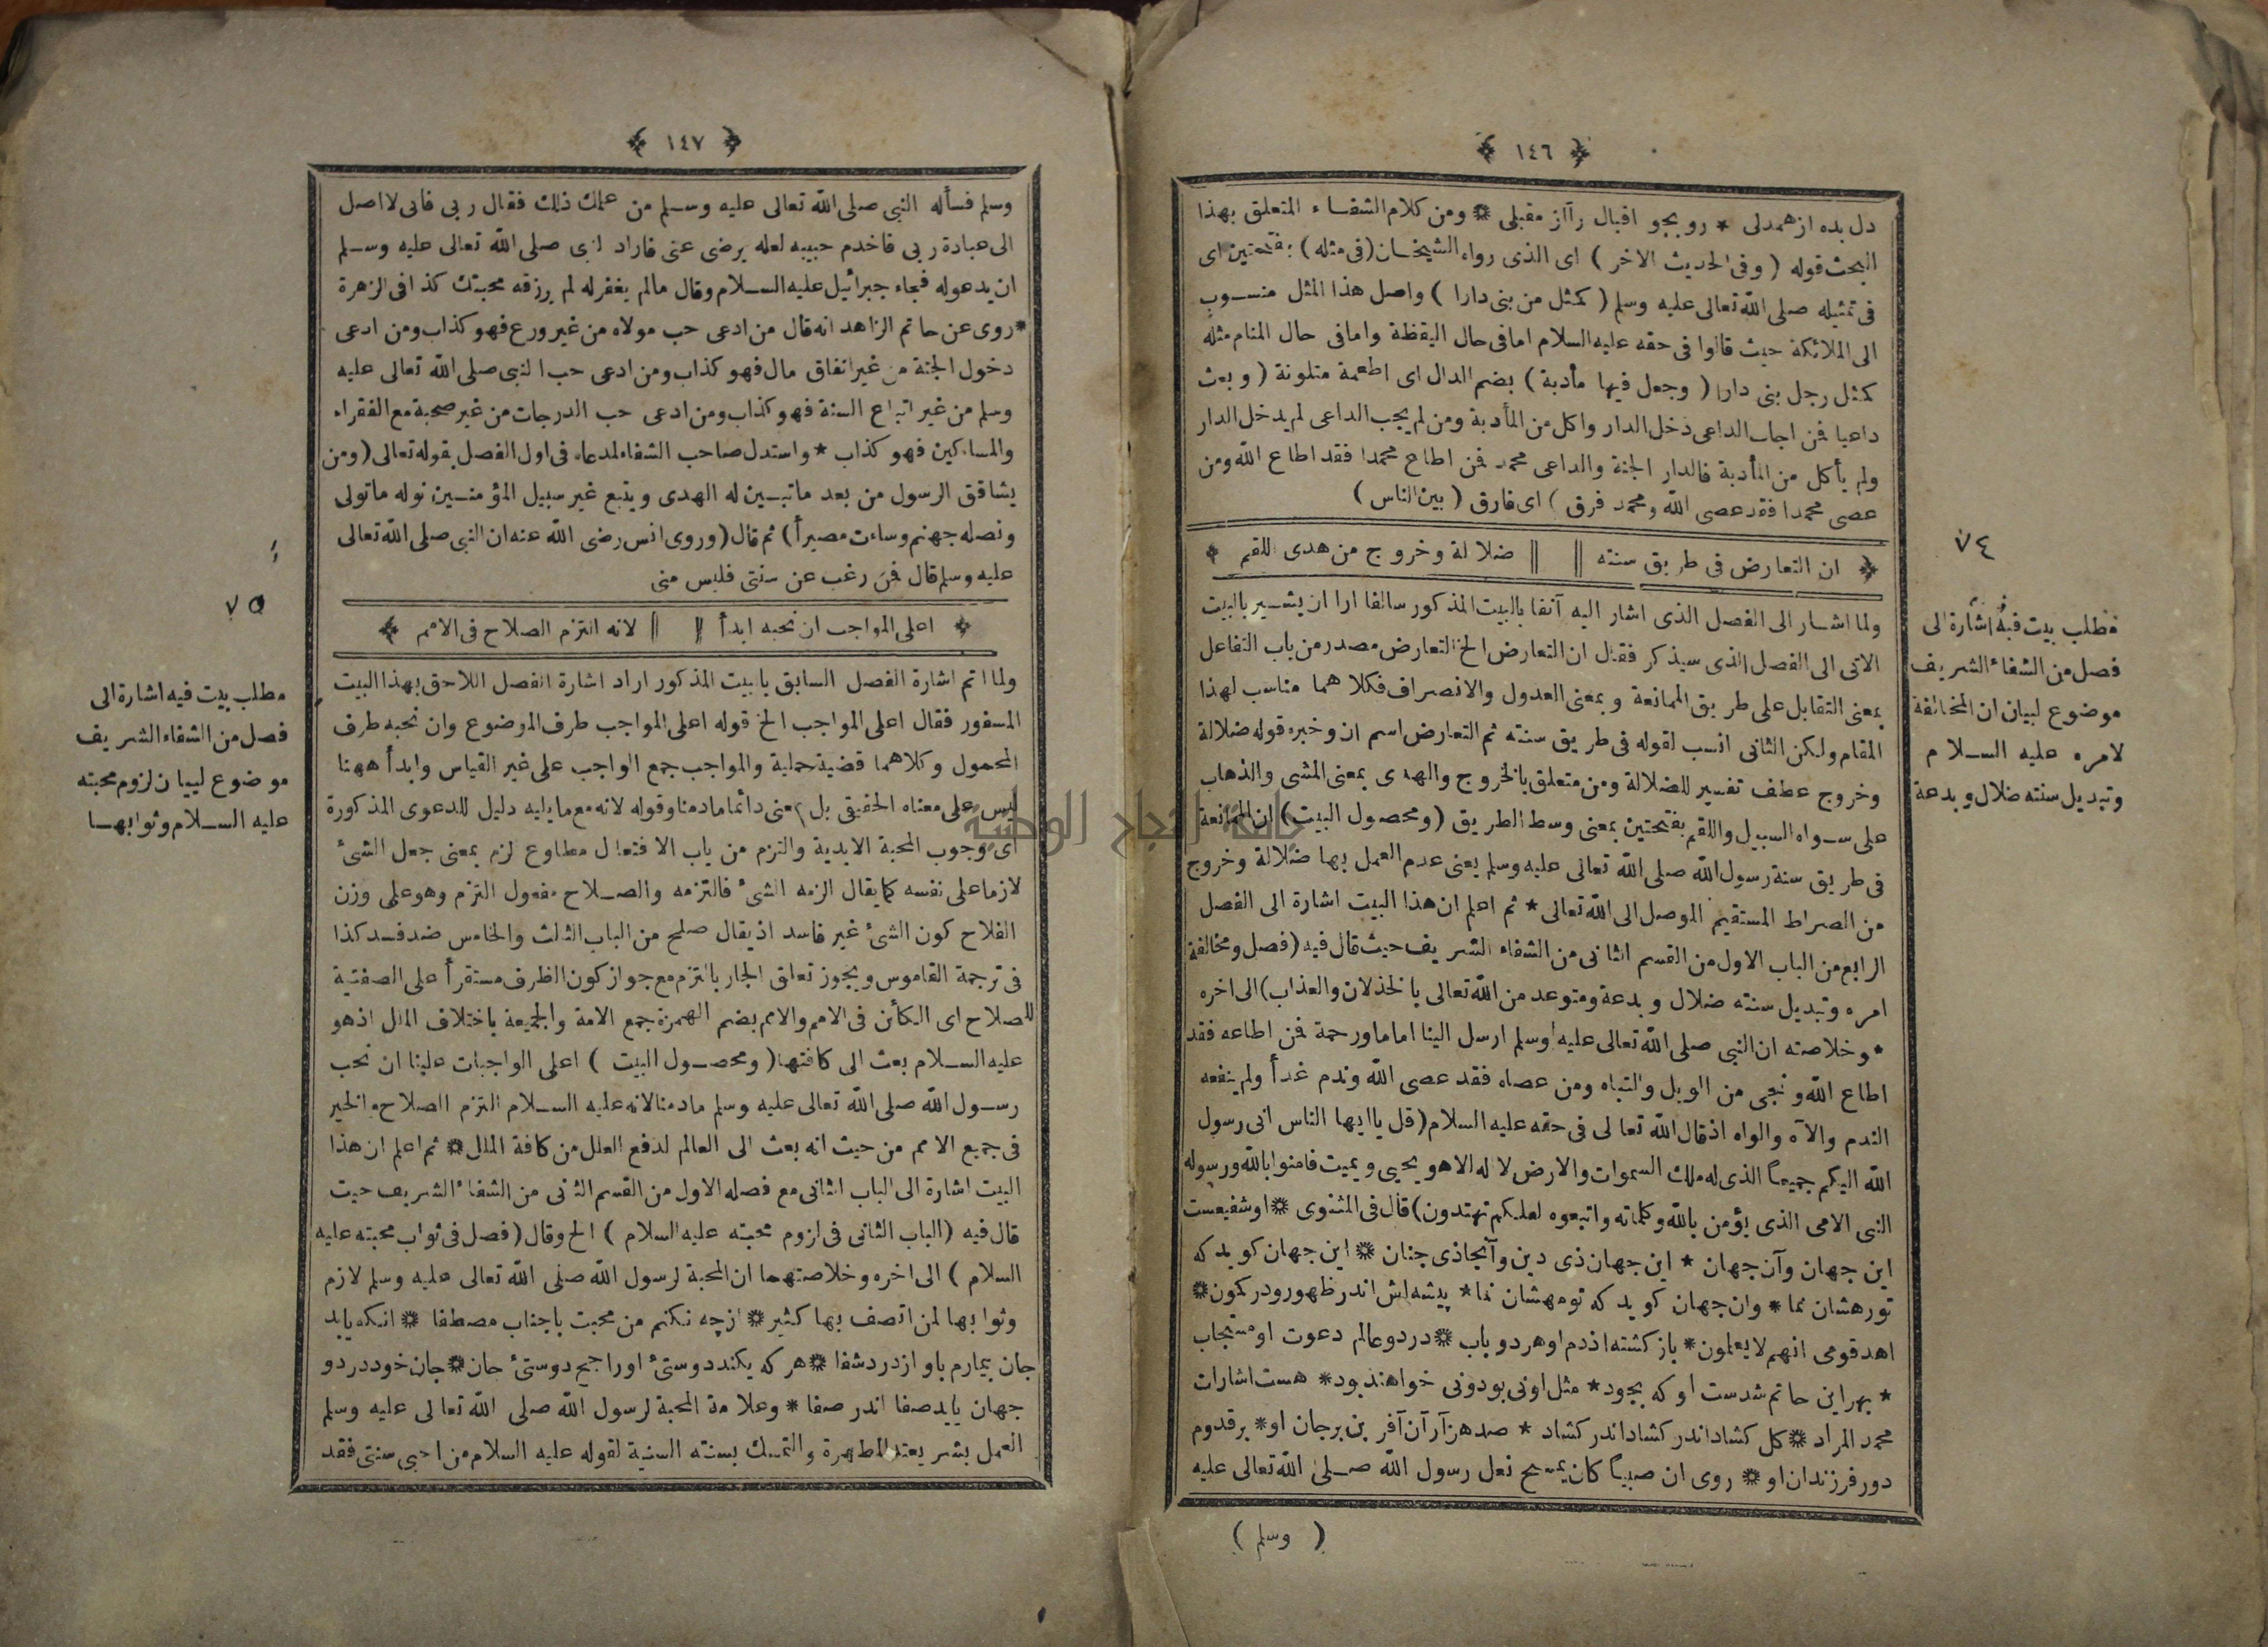 ﴿ ١٤٦ ﴾
دل بده از همدلى * رو بجو اقبال رآاز مقبلى * ومن كلام الشفاء المتعلق بهذا
البحث قوله ( وفى الحديث الاخر ) اى الذى رواه الشيخان (فى مثله) بفتحتين اى
فى تمثيله صلى الله تعالى عليه وسلم ( كمثل من بنى دارا ) واصل هذا المثل منسوب
الى الملائكة حيث قالوا فى حقه عليه السلام اما فى حال اليقظة واما فى حال المنام مثله
كمثل رجل بنى دارا ( وجعل فيها مأدبة ) بضم الدال اى اطعمة متلونة ( وبعث
داعيا فمن اجاب الداعى دخل الدار واكل من المأدبة ومن لم يجب الداعى لم يدخل الدار
ولم يأكل من المأدبة فالدار الجنة والداعى محمد فمن اطاع محمدا فقد اطاع الله ومن
عصى محمدا فقد عصى الله ومحمد فرق ) اى فارق ( بين الناس )
٧٤
﴿ ان التعارض فى طريق سنته || || ضلالة وخروج من هدى اللقم ﴾
ولما اشار الى الفصل الذى اشار اليه آنفا بالبيت المذكور سالفا ارا ان يشير بالبيت
الاتى الى الفصل الذى سيذكر فقال ان التعارض الخ التعارض مصدر من باب التفاعل
بمعنى التقابل على طريق الممانعة وبمعنى العدول والانصراف فكلاهما مناسب لهذا
المقام ولكن الثانى انسب لقوله فى طريق سنته ثم التعارض اسم ان وخبره قوله ضلالة
وخروج عطف تفسير للضلالة ومن متعلق بالخروج والهدى بمعنى المشى والذهاب
على سواه السبيل واللقم بفتحتين بمعنى وسط الطريق (ومحصول البيت) ان الممانعة
فى طريق سنة رسول الله صلى الله تعالى عليه وسلم يعنى عدم العمل بها ضلالة وخروج
من الصراط المستقيم الموصل الى الله تعالى * ثم اعلم ان هذا البيت اشارة الى الفصل
الرابع من الباب الاول من القسم الثانى من الشفاء الشريف حيث قال فيه (فصل ومخالفة
امره وتبديل سنته ضلال وبدعة ومتوعد من الله تعالى بالخذلان والعذاب) الى اخره
*وخلاصته ان النبى صلى الله تعالى عليه وسلم ارسل الينا اماما ورحمة فمن اطاعه فقد
اطاع الله ونجى من الويل والتباه ومن عصاه فقد عصى الله وندم غدأ ولم ينفعه
الندم والآه والواه اذ قال الله تعالى فى حقه عليه السلام (قل يا ايها الناس انى رسول
الله اليكم جميعا الذى له ملك السموات والارض لا اله الا هو يحيى ويميت فامنوا بالله ورسوله
النبى الامى الذى يؤمن بالله وكلماته واتبعوه لعلكم تهتدون) قال فى المثنوى * او شفيعست
اين جهان وآن جهان * اين جهان ذى دين وآنجا ذى جنان * اين جهان كويد كه
تو رهشان نما * وان جهان كويد كه تو مهشان نما * پيشه اش اندر ظهور ودر كمون *
اهد قومى انهم لا يعلمون * باز كشته از دم او هر دو باب * در دو عالم دعوت او مستجاب
* بهر اين حاتم شدست او كه بجود * مثل او نى بود ونى خواهند بود * هست اشارات
محمد المراد * كل كشاد اندر كشاد اندر كشاد * صد هزآرآن آفرين برجان او * برقدوم
دور فرزندان او * روى ان صبيا كان يمسح نعل رسول الله صلى الله تعالى عليه
( وسلم )
مطلب بيت فيه اشارة الى
فصل من الشفاء الشريف
موضوع لبيان ان المخالفة
لامره عليه السلام
وتبديل سنته ضلال وبدعة
﴿ ١٤٧ ﴾
وسلم فسأله النبى صلى الله تعالى عليه وسلم من عملك ذلك فقال ربى فانى لا اصل
الى عبادة ربى فاخدم حبيبه لعله يرضى عنى فاراد النبى صلى الله تعالى عليه وسلم
ان يدعو له فجاء جبرائيل عليه السلام وقال مالم يغفر له لم يرزقه محبتك كذا فى الزهرة
*روى عن حاتم الزاهد انه قال من ادعى حب مولاه من غير ورع فهو كذاب ومن ادعى
دخول الجنة من غير انفاق مال فهو كذاب ومن ادعى حب النبى صلى الله تعالى عليه
وسلم من غير اتباع السنة فهو كذاب ومن ادعى حب الدرجات من غير صحبة مع الفقراء
والمساكين فهو كذاب * واستدل صاحب الشفاء لمدعاه فى اول الفصل بقوله تعالى (ومن
يشاقق الرسول من بعد ما تبين له الهدى ويتبع غير سبيل المؤمنين نوله ما تولى
ونصله جهنم وساءت مصيرأ) ثم قال (وروى انس رضى الله عنه ان النبى صلى الله تعالى
عليه وسلم قال فمن رغب عن سنتى فليس منى
٧٥
﴿ اعلى المواجب ان نحبه ابدأ || || لانه التزم الصلاح فى الامم ﴾
ولما اتم اشارة الفصل السابق بابيت المذكور اراد اشارة الفصل اللاحق بهذا البيت
المسفور فقال اعلى المواجب الخ قوله اعلى المواجب طرف الموضوع وان نحبه طرف
المحمول وكلاهما قضية حملية والمواجب جمع الواجب على غير القياس وابدأ ههنا
ليس على معناه الحقيقى بل بمعنى دائما مادمنا وقوله لانه مع مايليه دليل للدعوى المذكورة
اى وجوب المحبة الابدية والتزم من باب الافتعال مطاوع لزم بمعنى جعل الشئ
لازما على نفسه كما يقال الزمه الشئ فالتزمه والصلاح مفعول التزم وهو على وزن
الفلاح كون الشئ غير فاسد اذ يقال صلح من الباب الثالث والخامس ضد فسد كذا
فى ترجمة القاموس ويجوز تعلق الجار بالتزم مع جواز كون الظرف مستقرأ على الصفتية
للصلاح اى الكأئن فى الامم والامم بضم الهمزة جمع الامة والجمعية باختلاف الملل اذ هو
عليه السلام بعث الى كافتها (ومحصول البيت ) اعلى الواجبات علينا ان نحب
رسول الله صلى الله تعالى عليه وسلم مادمنا لانه عليه السلام التزم الصلاح والخير
فى جميع الامم من حيث انه بعث الى العالم لدفع العلل من كافة الملل * ثم اعلم ان هذا
البيت اشارة الى الباب الثانى مع فصله الاول من القسم الثانى من الشفاء الشريف حيث
قال فيه (الباب الثانى فى لزوم محبته عليه السلام ) الخ وقال (فصل فى ثواب محبته عليه
السلام ) الى اخره وخلاصتهما ان المحبة لرسول الله صلى الله تعالى عليه وسلم لازم
وثوابها لمن اتصف بها كثير * ازچه نكنم من محبت باجناب مصطفا * انكه يابد
جان بيمارم باو از درد شفا * هر كه يكند دوستئ او راجح دوستئ جان * جان خود در دو
جهان يابد صفا اندر صفا * وعلامة المحبة لرسول الله صلى الله تعالى عليه وسلم
العمل بشريعته المطهرة والتمسك بسنته السنية لقوله عليه السلام من احيى سنتى فقد
مطلب بيت فيه اشارة الى
فصل من الشفاء الشريف
موضوع لبيان لزوم محبته
عليه السلام وثوابها
جامعة النجاح الوطنية